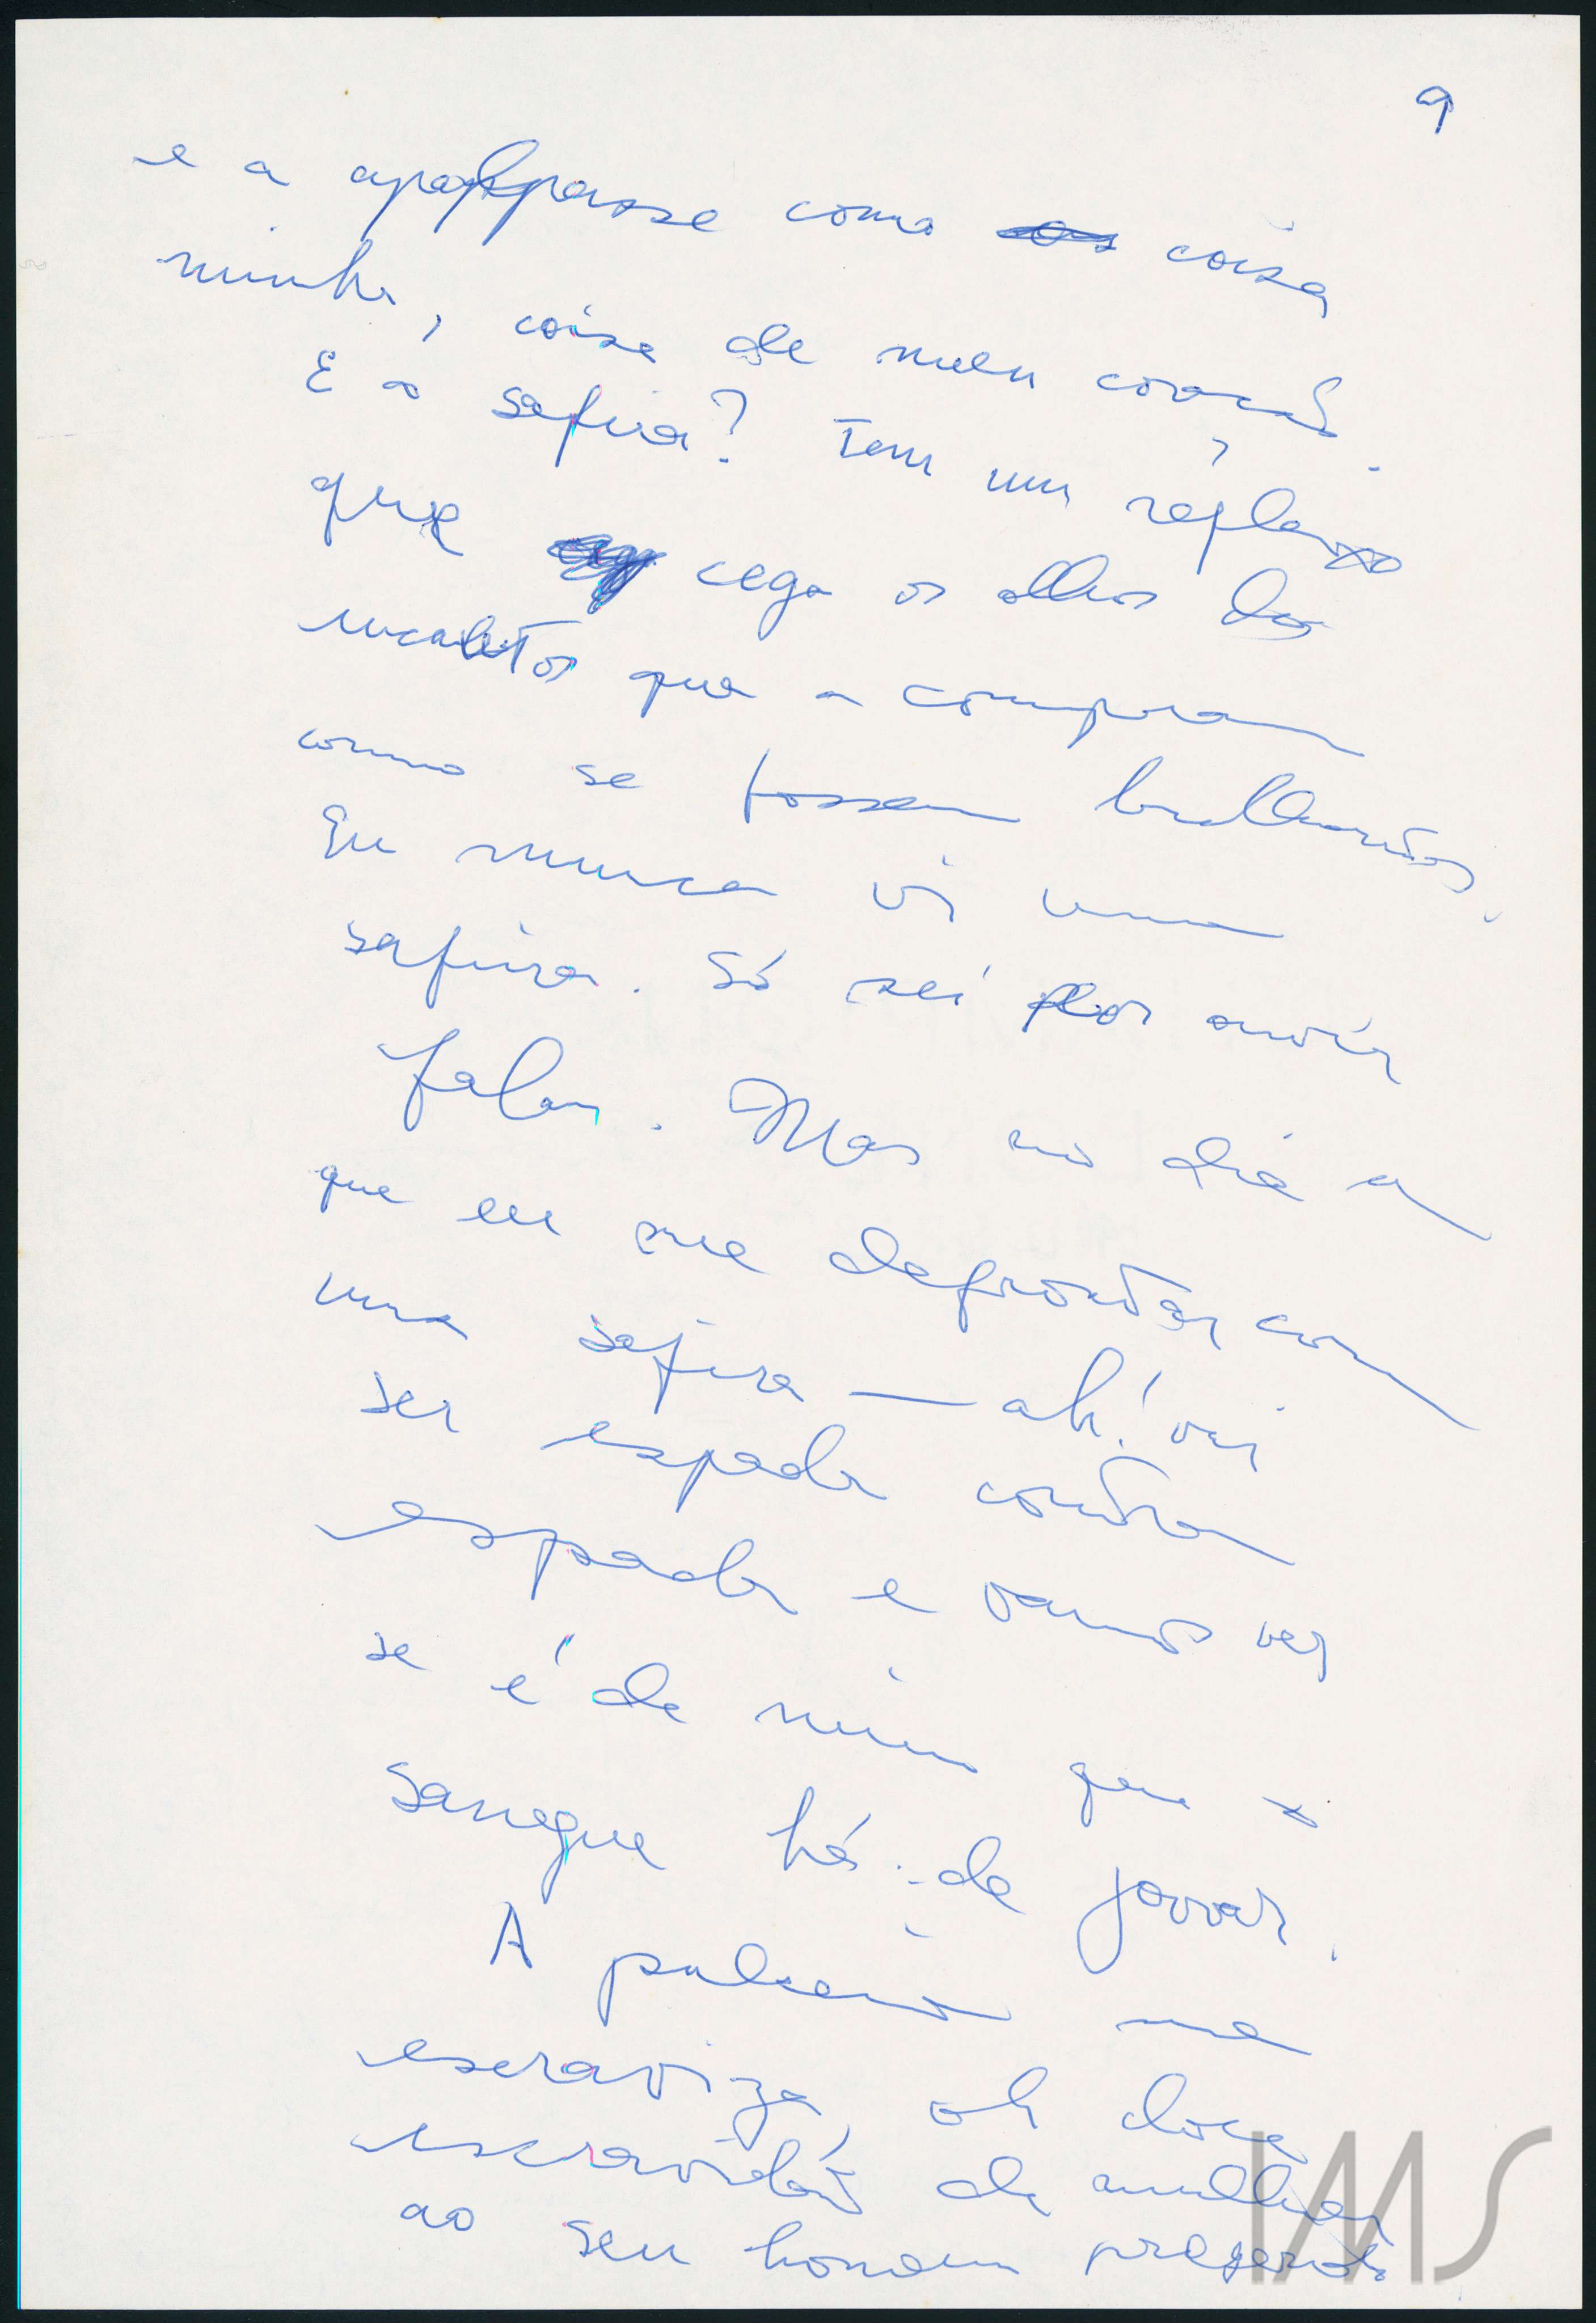 9
e a apalpasse como coisa
minha, coisa de meu coração.
E a safira? Tem um reflexo
que cega os olhos dos
incautos que a compram
como se fossem brilhantes.
Eu nunca vi uma
safira. Só sei por ouvir
falar. Mas no dia em
que eu me defrontar com
uma safira — ah! vai
ser espada contra
espada e vamos ver
se é de mim que o
sangue há de jorrar.
A pulseira me
escraviza, oh doce
escravidão de mulher
ao seu homem preferido.
IMS